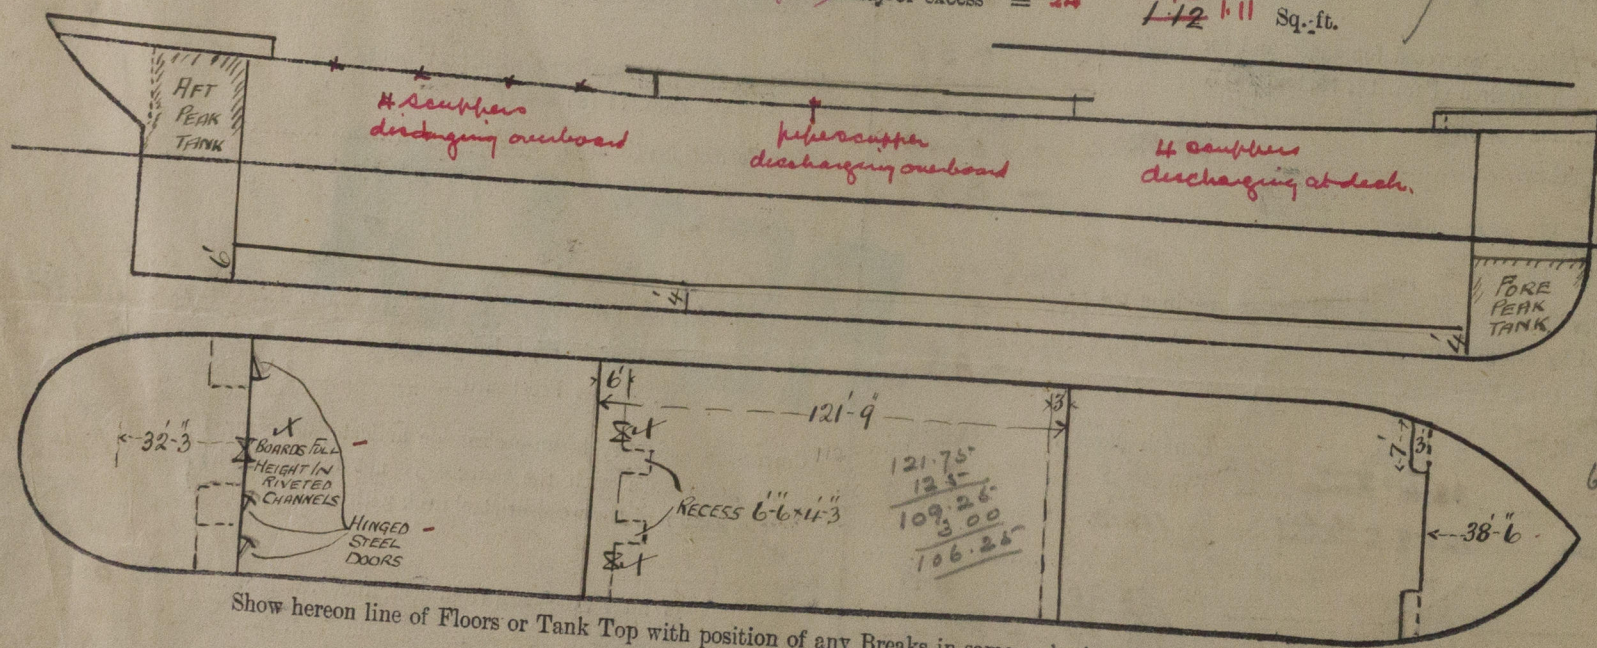 excess =
1.12 1.11 Sq.-ft.
AFT
PEAK
TANK
4 scuppers
discharging overboard
pipe scupper
discharging overboard
4 scuppers
discharging at deck.
6'
4'
4'
FORE
PEAK
TANK
32'-3"
BOARDS FULL
HEIGHT IN
RIVETED
CHANNELS
HINGED
STEEL
DOORS
6'
121'-9"
3'
RECESS 6'-6"×4'-3"
121.75
12.5
109.25
3.00
106.25
7'
3'
38'-6"
Show hereon line of Floors or Tank Top with position of any Breaks in